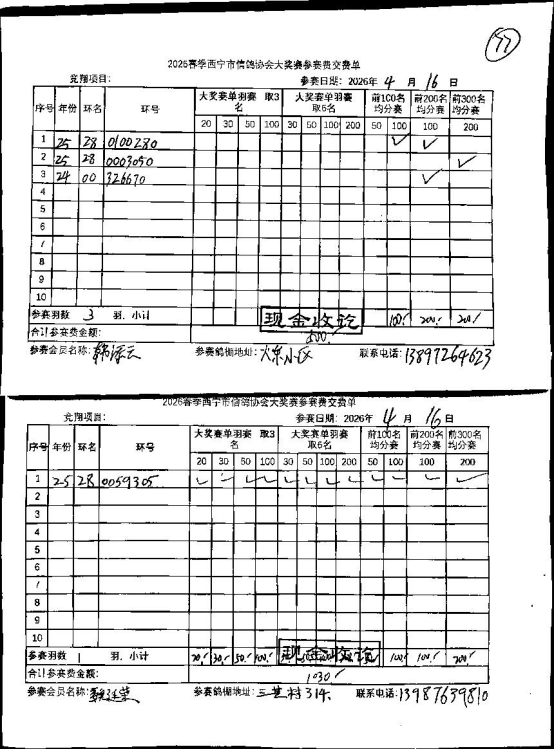 77
2026春季西宁市信鸽协会大奖赛参赛费交费单
竞翔项目: 参赛日期: 2026年 4 月 16 日
序号 年份 环名 环号 大奖赛单羽赛 取3名 大奖赛单羽赛 取6名 前100名均分赛 前200名均分赛 前300名均分赛
20 30 50 100 30 50 100 200 50 100 100 200
1 25 28 0100280 ✓ ✓
2 25 28 0003050 ✓
3 24 00 326670 ✓
4
5
6
7
8
9
10
参赛羽数 3 羽. 小计 现金收讫 100 200 200
合计参赛费金额: 500
参赛会员名称: 参赛鸽棚地址: 联系电话: 13897264623
2026春季西宁市信鸽协会大奖赛参赛费交费单
竞翔项目: 参赛日期: 2026年 4 月 16 日
序号 年份 环名 环号 大奖赛单羽赛 取3名 大奖赛单羽赛 取6名 前100名均分赛 前200名均分赛 前300名均分赛
20 30 50 100 30 50 100 200 50 100 100 200
1 25 28 0059305 ✓ ✓ ✓ ✓ ✓ ✓ ✓ ✓ ✓ ✓ ✓ ✓
2
3
4
5
6
7
8
9
10
参赛羽数 1 羽. 小计 20 30 50 100 现金收讫 100 100 200
合计参赛费金额: 1030
参赛会员名称: 参赛鸽棚地址: 联系电话: 13987639810